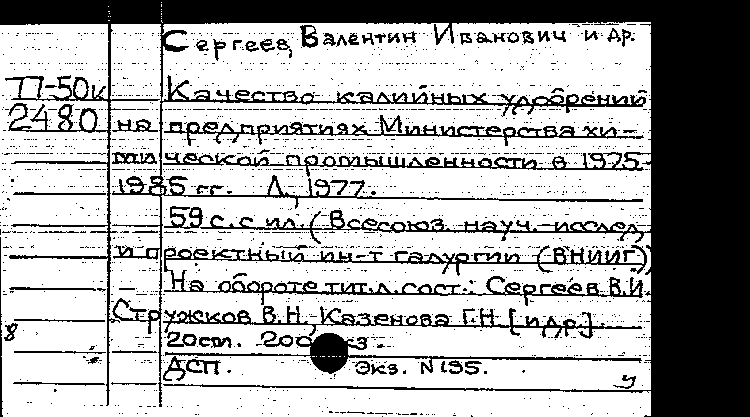 Сергеев, Валентин Иванович и др.
П7-50к
2480
Качество калийных удобрений
на предприятиях Министерства хи-
мической промышленности в 1975-
1985 гг. Л., 1977.
59 с. с ил. (Всесоюз. науч.-исслед.
и проектный ин-т галургии (ВНИИГ))
На обороте тит.л. сост.: Сергеев В.И.
Стружков В.Н., Казенова Г.Н. [и др.]
8
20см. 200 кз.
ДСП. Экз. N 195.